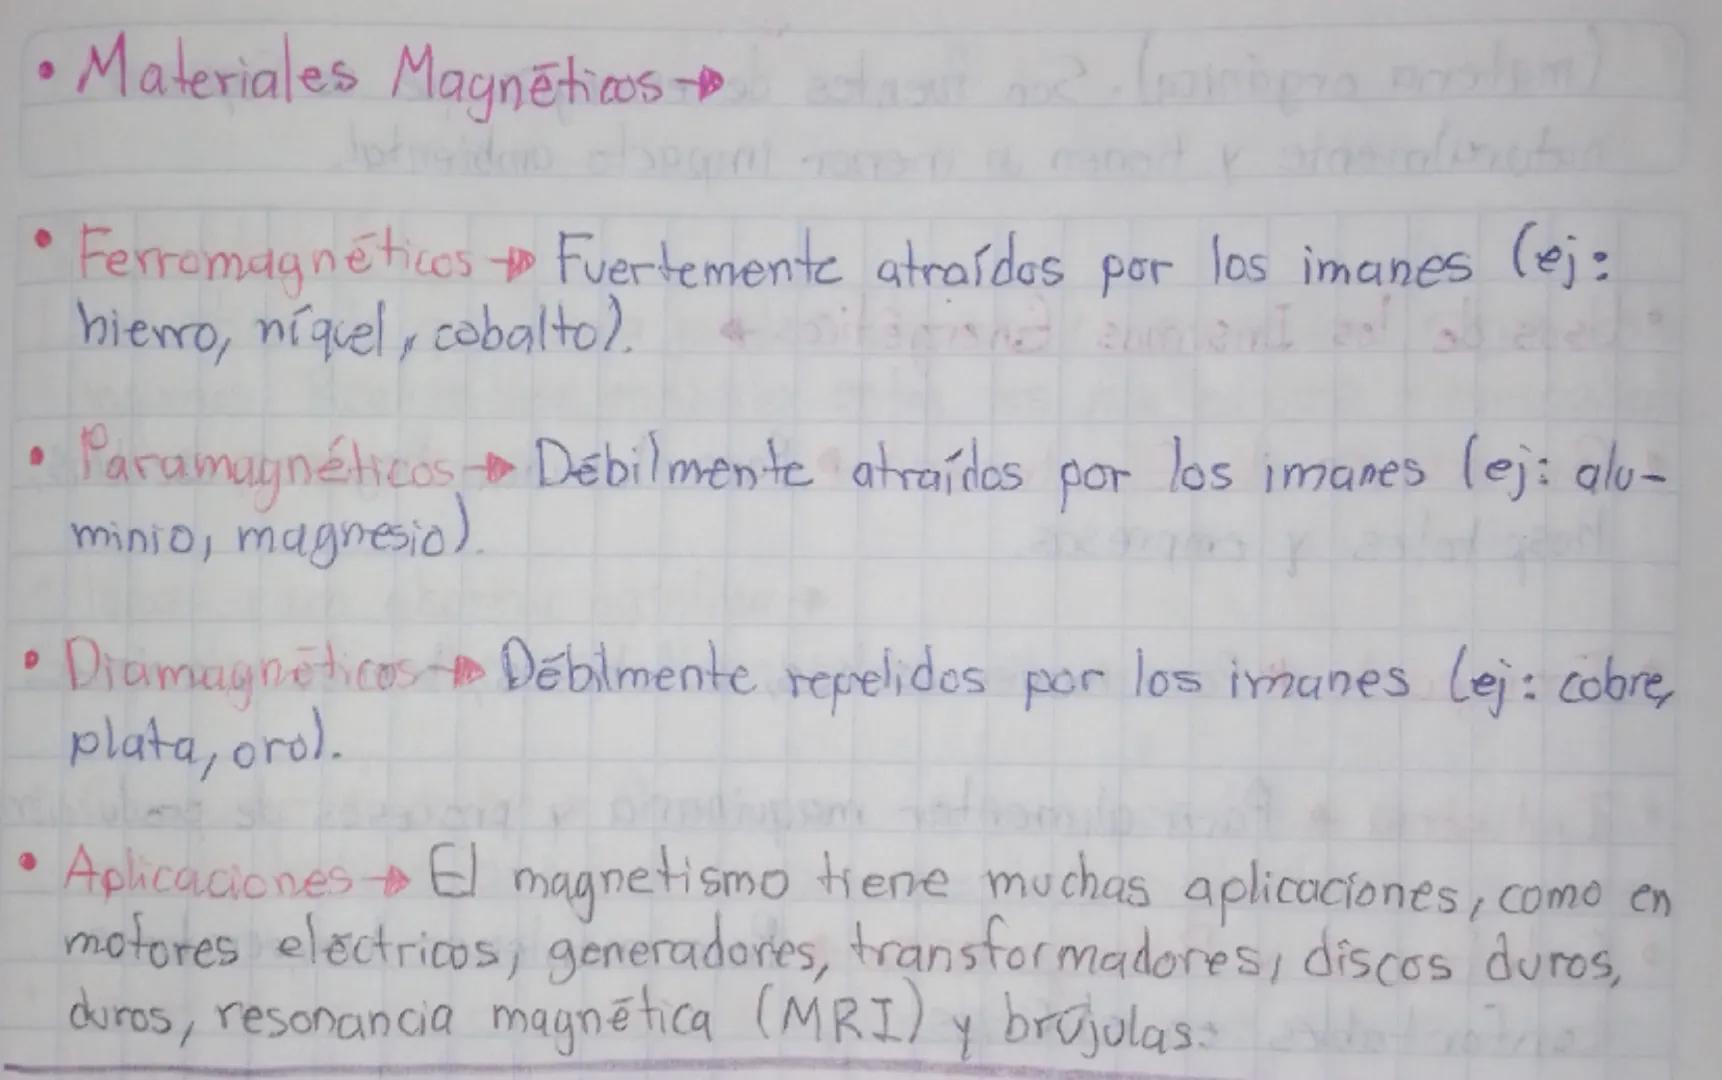 • Materiales Magnéticos →
• Ferromagnéticos → Fuertemente atraídos por los imanes (ej:
hierro, níquel, cobalto).
• Paramagnéticos → Débilmente atraídos por los imanes (ej: alu-
minio, magnesio).
• Diamagnéticos → Débilmente repelidos por los imanes (ej: cobre,
plata, oro).
• Aplicaciones → El magnetismo tiene muchas aplicaciones, como en
motores eléctricos, generadores, transformadores, discos duros,
duros, resonancia magnética (MRI) y brújulas.